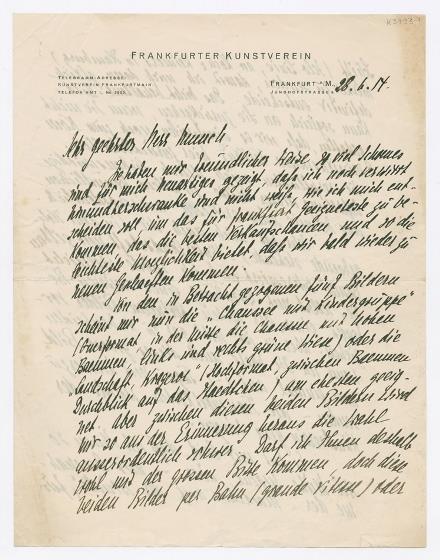 K3793-1
FRANKFURTER KUNSTVEREIN
TELEGRAMM-ADRESSE:
KUNSTVEREIN FRANKFURTMAIN
TELEFON AMT
FRANKFURT A/M., 28.6.14.
JUNGHOFSTRASSE
Sehr geehrter Herr Munch.
Sie haben mir freundlicher Weise so viel Schönes
und für mich Neuartiges gezeigt, dass ich noch verwirrt
und nicht weiss, wie ich mich ent-
scheiden soll, um das für Frankfurt Geeignetste zu be-
kommen, das die besten Verkaufschancen und so die
leichteste Möglichkeit bietet, dass wir bald wieder zu
neuen Geschäften kommen.
Von den in Betracht gezogenen fünf Bildern
scheint mir nun die „Chaussee mit Kindergruppe"
(Querformat, in der Mitte die Chaussee mit hohen
Baeumen, links und rechts grüne Wiesen) oder die
„Landschaft, Kragerø" (Hochformat, zwischen Baeumen
Durchblick auf das Staedtchen) am ehesten geeig-
net aber zwischen diesen beiden Bildern wird
mir so aus der Erinnerung heraus die Wahl
ausserordentlich schwer. Darf ich Ihnen deshalb
wohl mit der grossen Bitte kommen, doch diese
beiden Bilder per Bahn (grande vitesse) oder